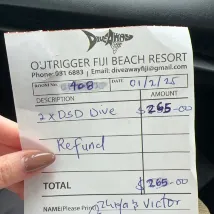 DIVEAWAY
OUTRIGGER FIJI BEACH RESORT
Phone: 931 6883 | Email: diveawayfiji@gmail.com
ROOM NO 408 DATE 01/2/25
DESCRIPTION AMOUNT
2 x DSD Dive $265-00
Refund
TOTAL $265-00
NAME:(Please Print) & Victor